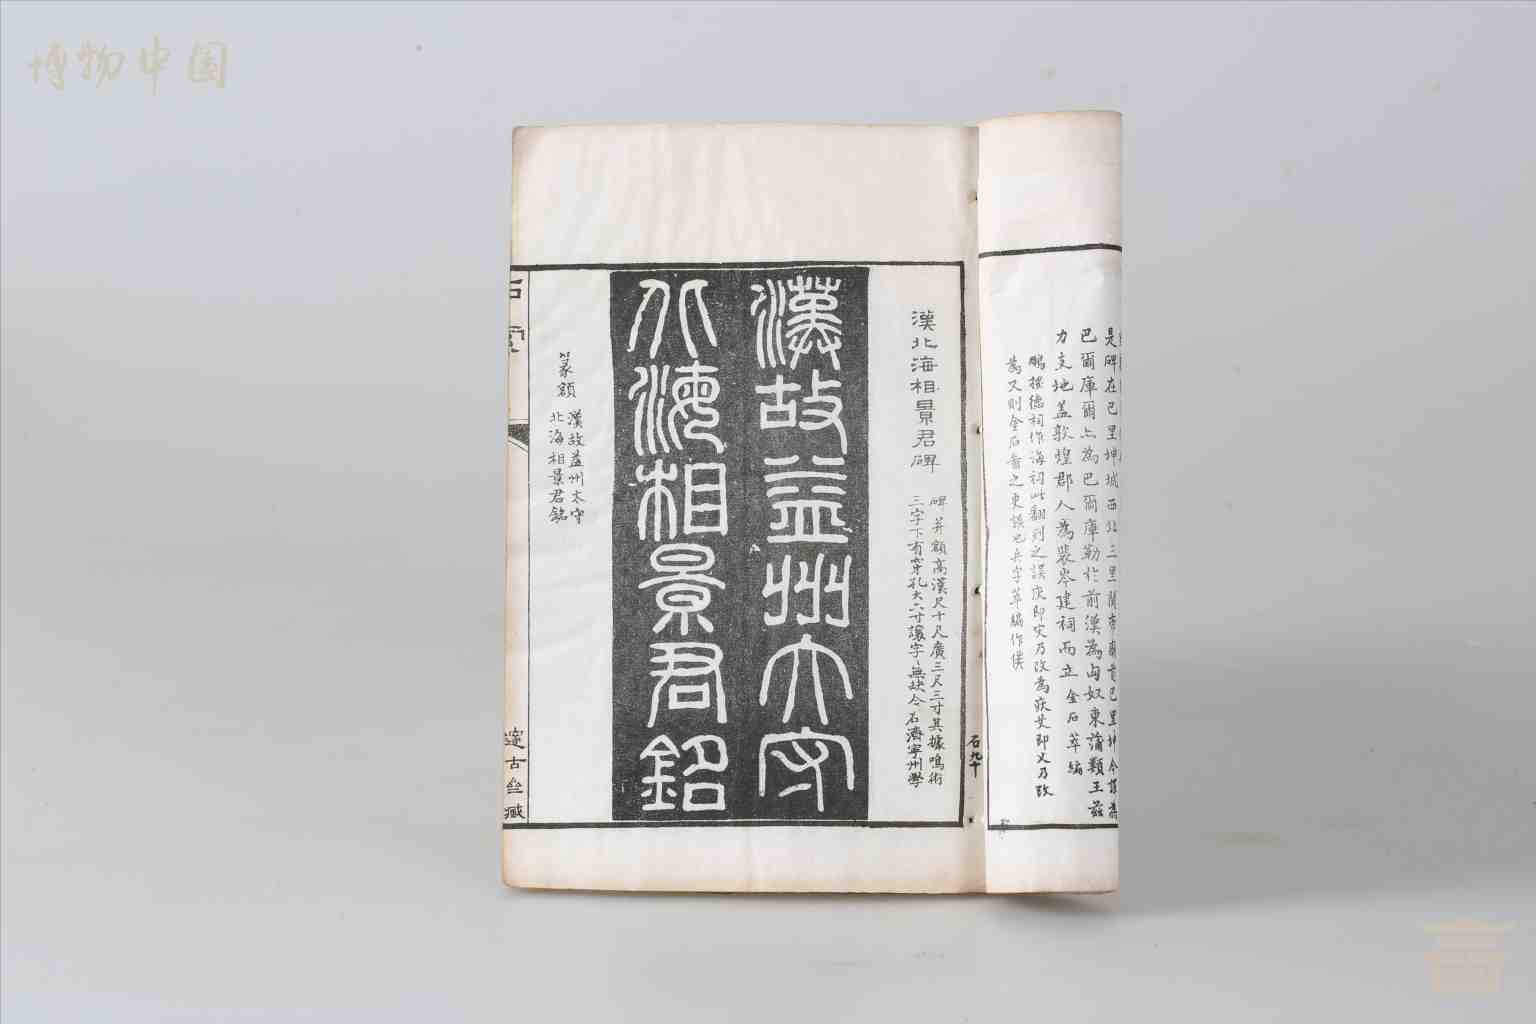 博物中国
是碑在巴里坤城西北三里關帝廟前巴里坤今謂為
巴爾庫爾亦為巴爾庫勒於前漢為匈奴東蒲類王茲
力支地蓋敦煌郡人為裴岑建祠而立 金石萃編
鵬按德祠作海祠此翻刻之誤
為又則金石
石九十
漢北海相景君碑
碑并額高漢尺十尺廣三尺三寸其據鳴術
三字下有穿孔大六寸讓字無缺今石濟寧州學
漢故益州太守
北海相景君銘
篆額
漢故益州太守
北海相景君銘
石索
邃古齋藏